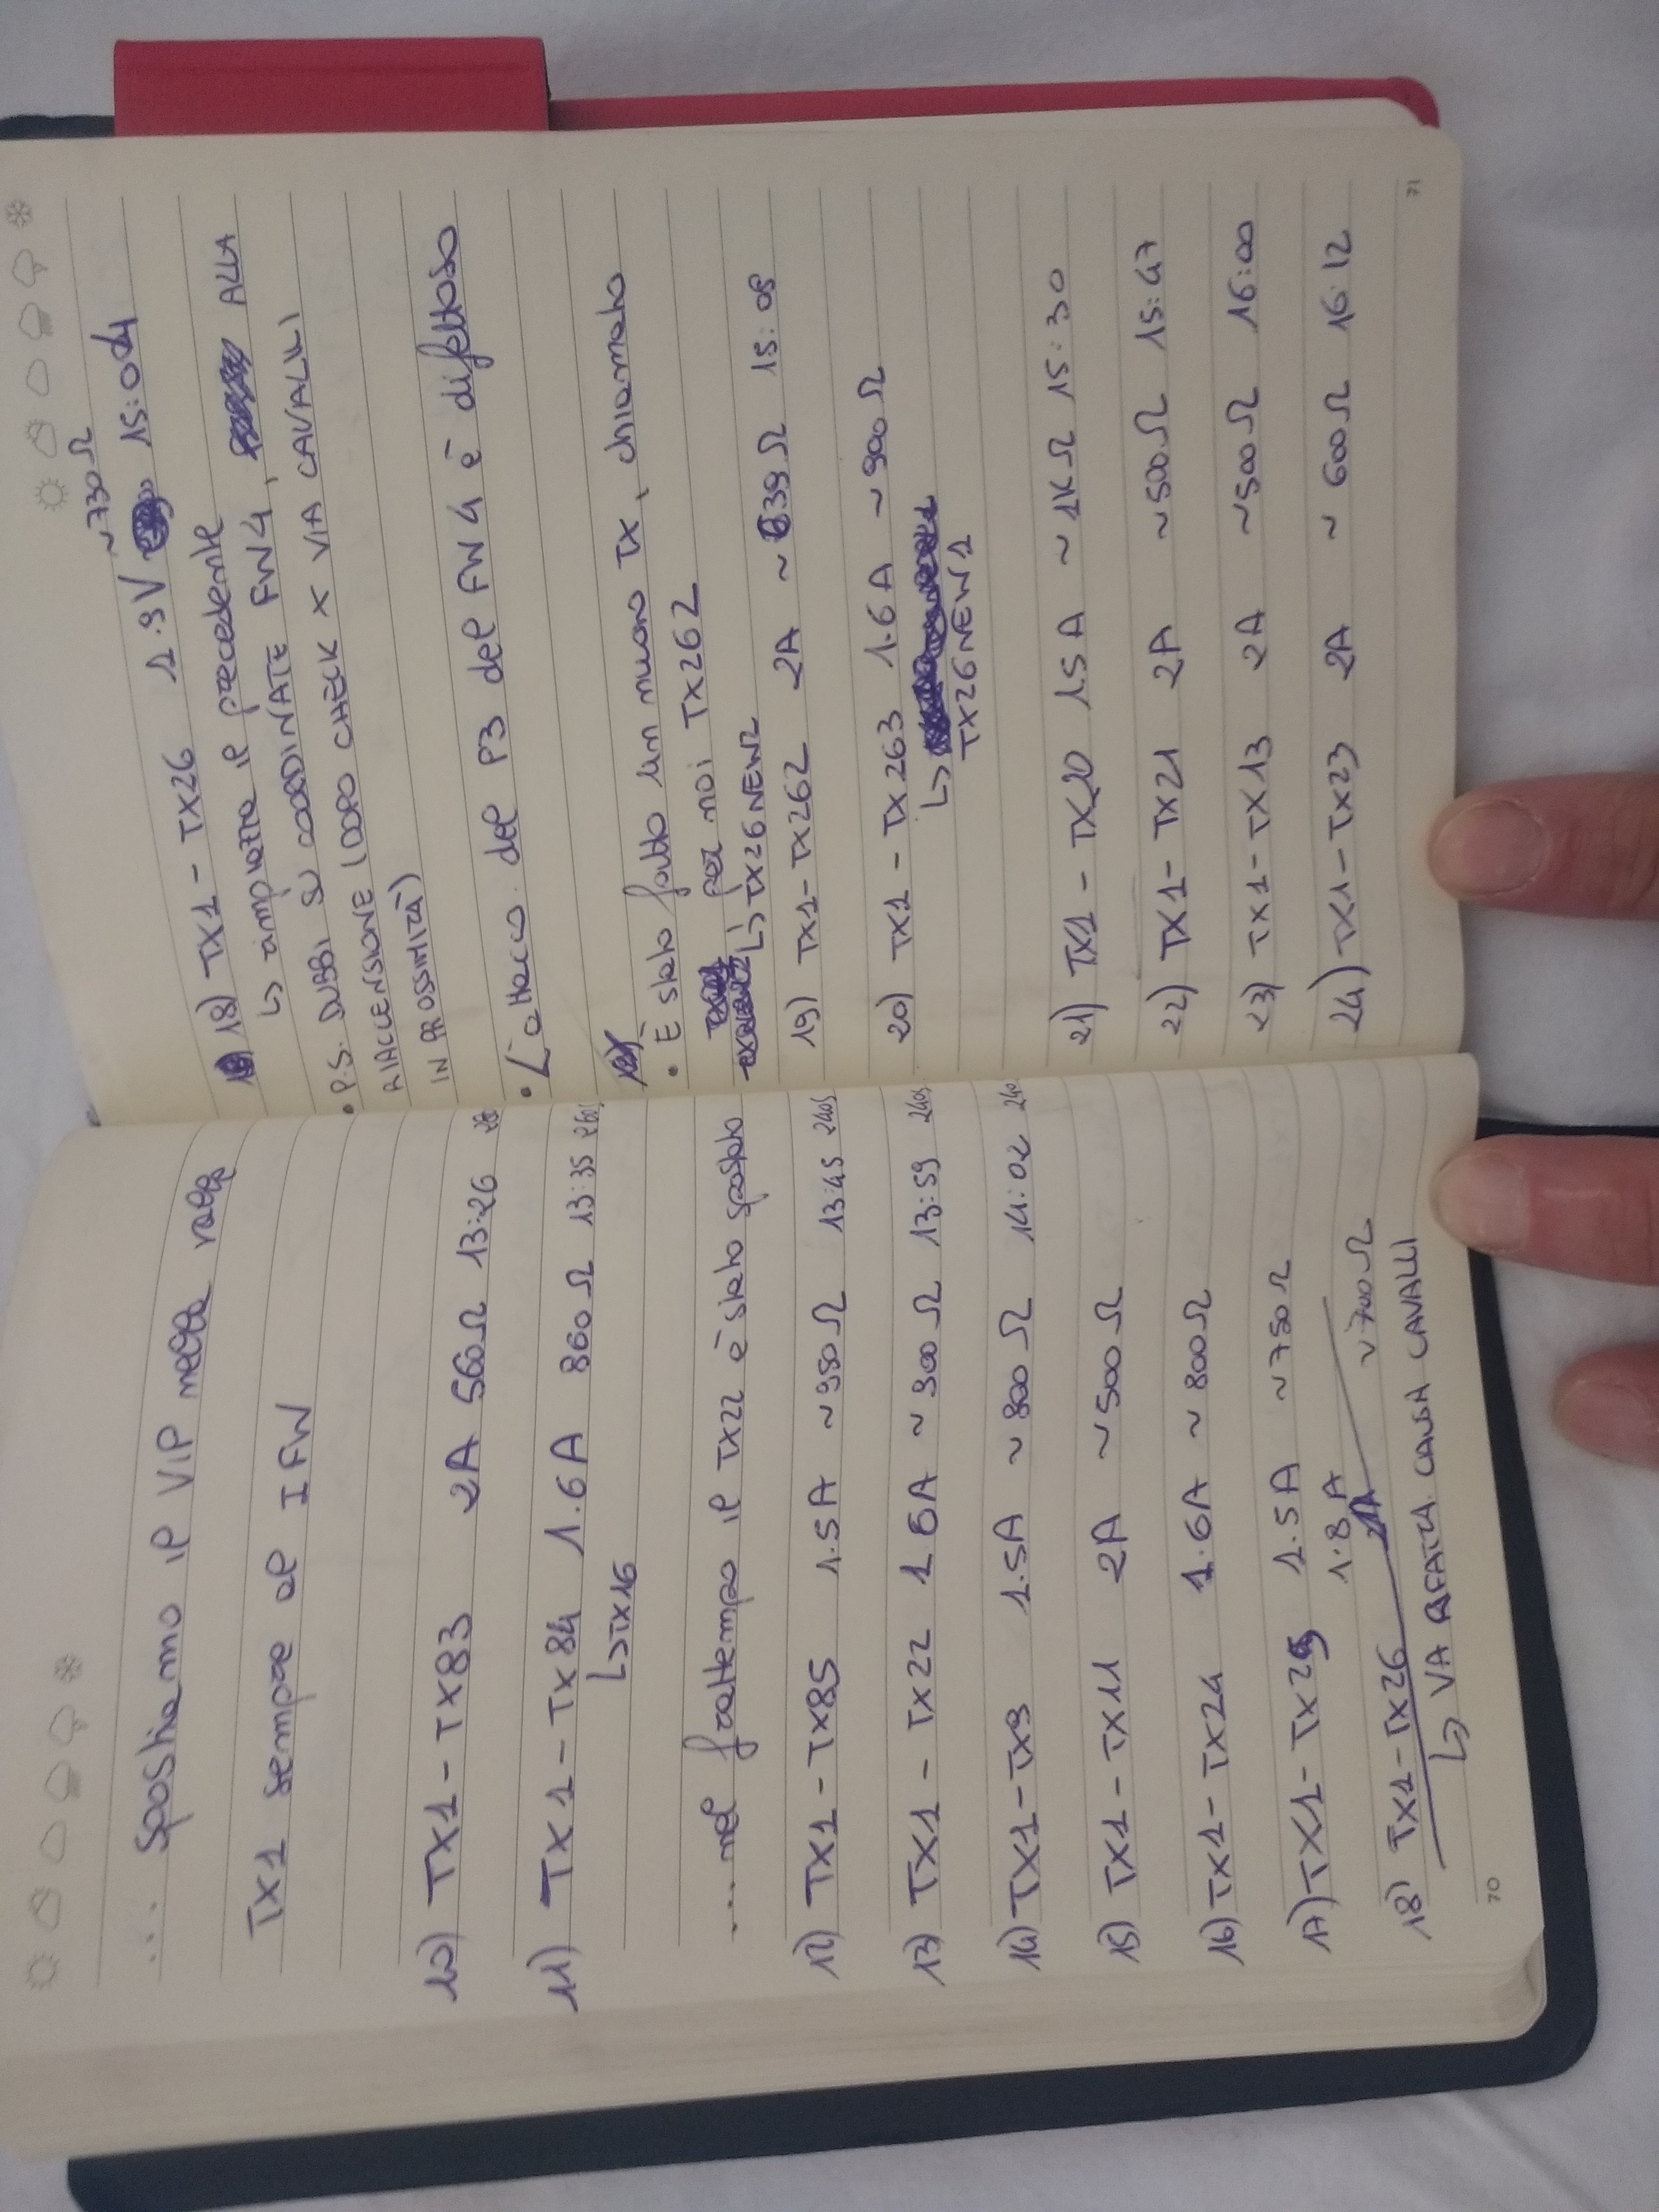 ... spostiamo il VIP nella valle
TX1 sempre al IFW
10) TX1 - TX83 2A 560Ω 13:26
11) TX1 - TX84 1.6A 860Ω 13:35 260s
↳TX16
... nel frattempo il TX22 è stato spostato
12) TX1 - TX85 1.5A ~950Ω 13:45 240s
13) TX1 - TX22 1 6A ~900Ω 13:59 240s
14) TX1 - TX9 1.5A ~800Ω 14:02 240
15) TX1 - TX11 2A ~500Ω
16) TX1 - TX24 1.6A ~800Ω
17) TX1 - TX25 1.5A ~750Ω
1.8A
18) TX1 - TX26 ~700Ω
↳ VA RIFATTA CAUSA CAVALLI
70
~730Ω
18) TX1 - TX26 1.9V 15:04
↳ rimpiazza il precedente
• P.S. DUBBI SU COORDINATE FW4, ALLA
RIACCENSIONE (DOPO CHECK X VIA CAVALLI
IN PROSSIMITÀ)
• L'attacco del P3 del FW4 è difettoso
• È stato fatto un nuovo TX, chiamato
, per noi TX262
↳ TX26NEW2
19) TX1 - TX262 2A ~639Ω 15:08
20) TX1 - TX263 1.6A ~900Ω
↳
TX26NEW1
21) TX1 - TX20 1.5A ~1KΩ 15:30
22) TX1 - TX21 2A ~500Ω 15:47
23) TX1 - TX13 2A ~500Ω 16:00
24) TX1 - TX23 2A ~600Ω 16:12
71